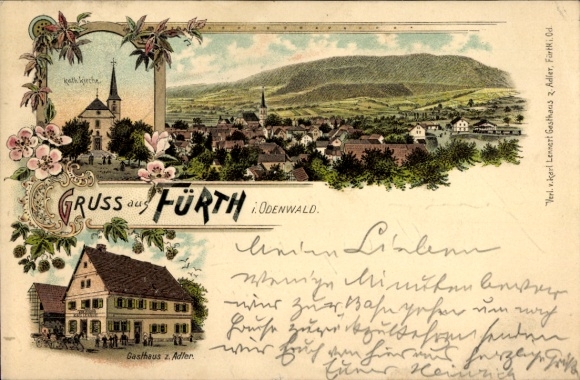 Kath. Kirche.
Verl. v. Karl Lennert Gasthaus z. Adler, Fürth i. Od.
GRUSS aus FÜRTH i. ODENWALD.
Gasthaus z. Adler.
Meine Lieben
Wenige Minuten bevor
wir zur Bahn gehen um nach
Hause zurückzukehren senden
wir Euch von hier aus herzliche Grüße
Euer Heinrich